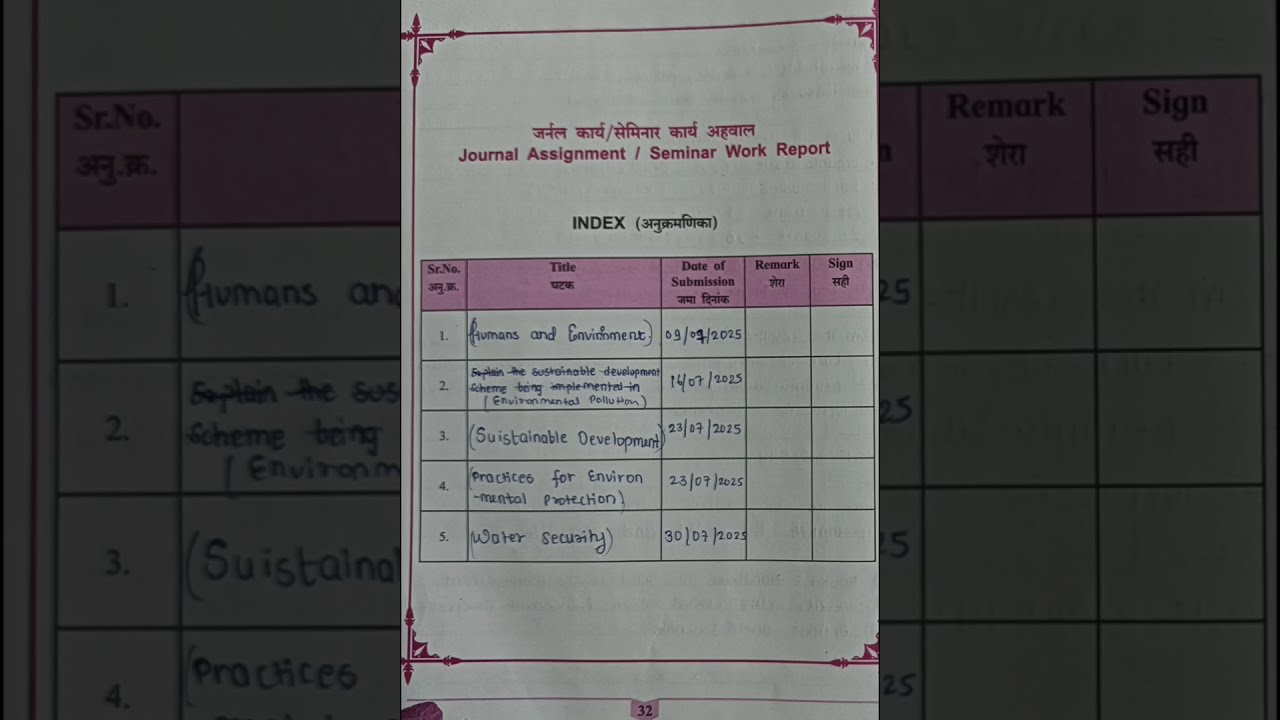 जर्नल कार्य/सेमिनार कार्य अहवाल
Journal Assignment / Seminar Work Report
INDEX (अनुक्रमणिका)
Sr.No. Title Date of Remark Sign
अनु.क्र. घटक Submission शेरा सही
जमा दिनांक
1. (Humans and Envirnment) 09/07/2025
2. Explain the sustainable development 16/07/2025
scheme being implemented in
(Environmental Pollution)
3. (Suistainable Development) 23/07/2025
4. (Practices for Environ 23/07/2025
-mental protection)
5. (Water security) 30/07/2025
32